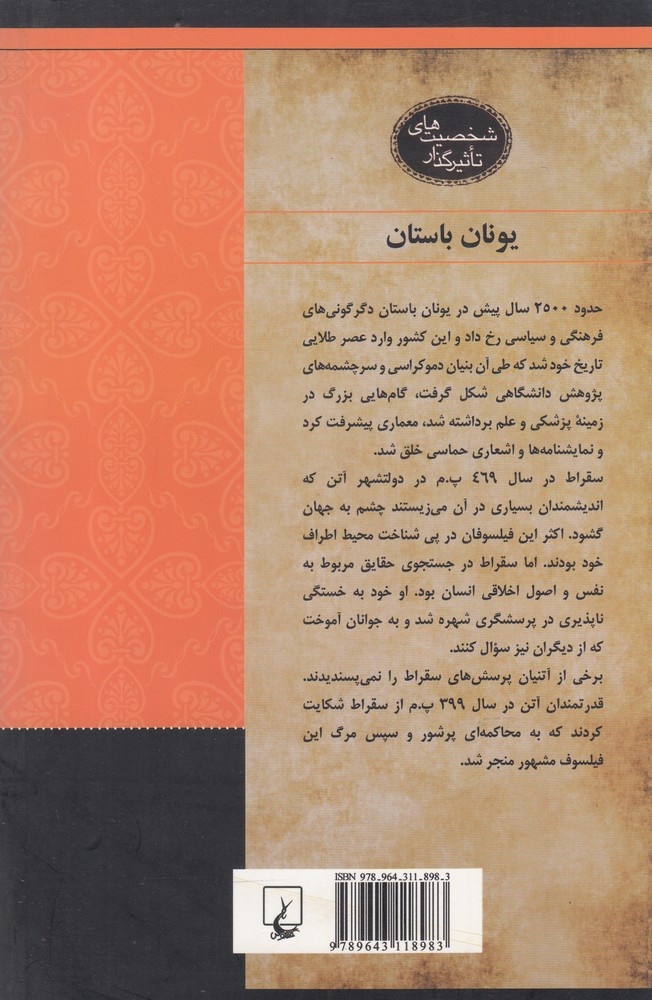 شخصیت‌های
تأثیرگذار
یونان باستان
حدود ۲۵۰۰ سال پیش در یونان باستان دگرگونی‌های
فرهنگی و سیاسی رخ داد و این کشور وارد عصر طلایی
تاریخ خود شد که طی آن بنیان دموکراسی و سرچشمه‌های
پژوهش دانشگاهی شکل گرفت، گام‌هایی بزرگ در
زمینهٔ پزشکی و علم برداشته شد، معماری پیشرفت کرد
و نمایشنامه‌ها و اشعاری حماسی خلق شد.
سقراط در سال ۴۶۹ پ.م در دولتشهر آتن که
اندیشمندان بسیاری در آن می‌زیستند چشم به جهان
گشود. اکثر این فیلسوفان در پی شناخت محیط اطراف
خود بودند. اما سقراط در جستجوی حقایق مربوط به
نفس و اصول اخلاقی انسان بود. او خود به خستگی
ناپذیری در پرسشگری شهره شد و به جوانان آموخت
که از دیگران نیز سؤال کنند.
برخی از آتنیان پرسش‌های سقراط را نمی‌پسندیدند.
قدرتمندان آتن در سال ۳۹۹ پ.م از سقراط شکایت
کردند که به محاکمه‌ای پرشور و سپس مرگ این
فیلسوف مشهور منجر شد.
ISBN 978-964-311-898-3
9 789643 118983
ققنوس